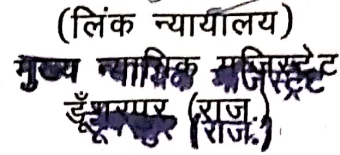 (लिंक न्यायालय)
मुख्य न्यायिक मजिस्ट्रेट
डूँगरपुर (राज.)